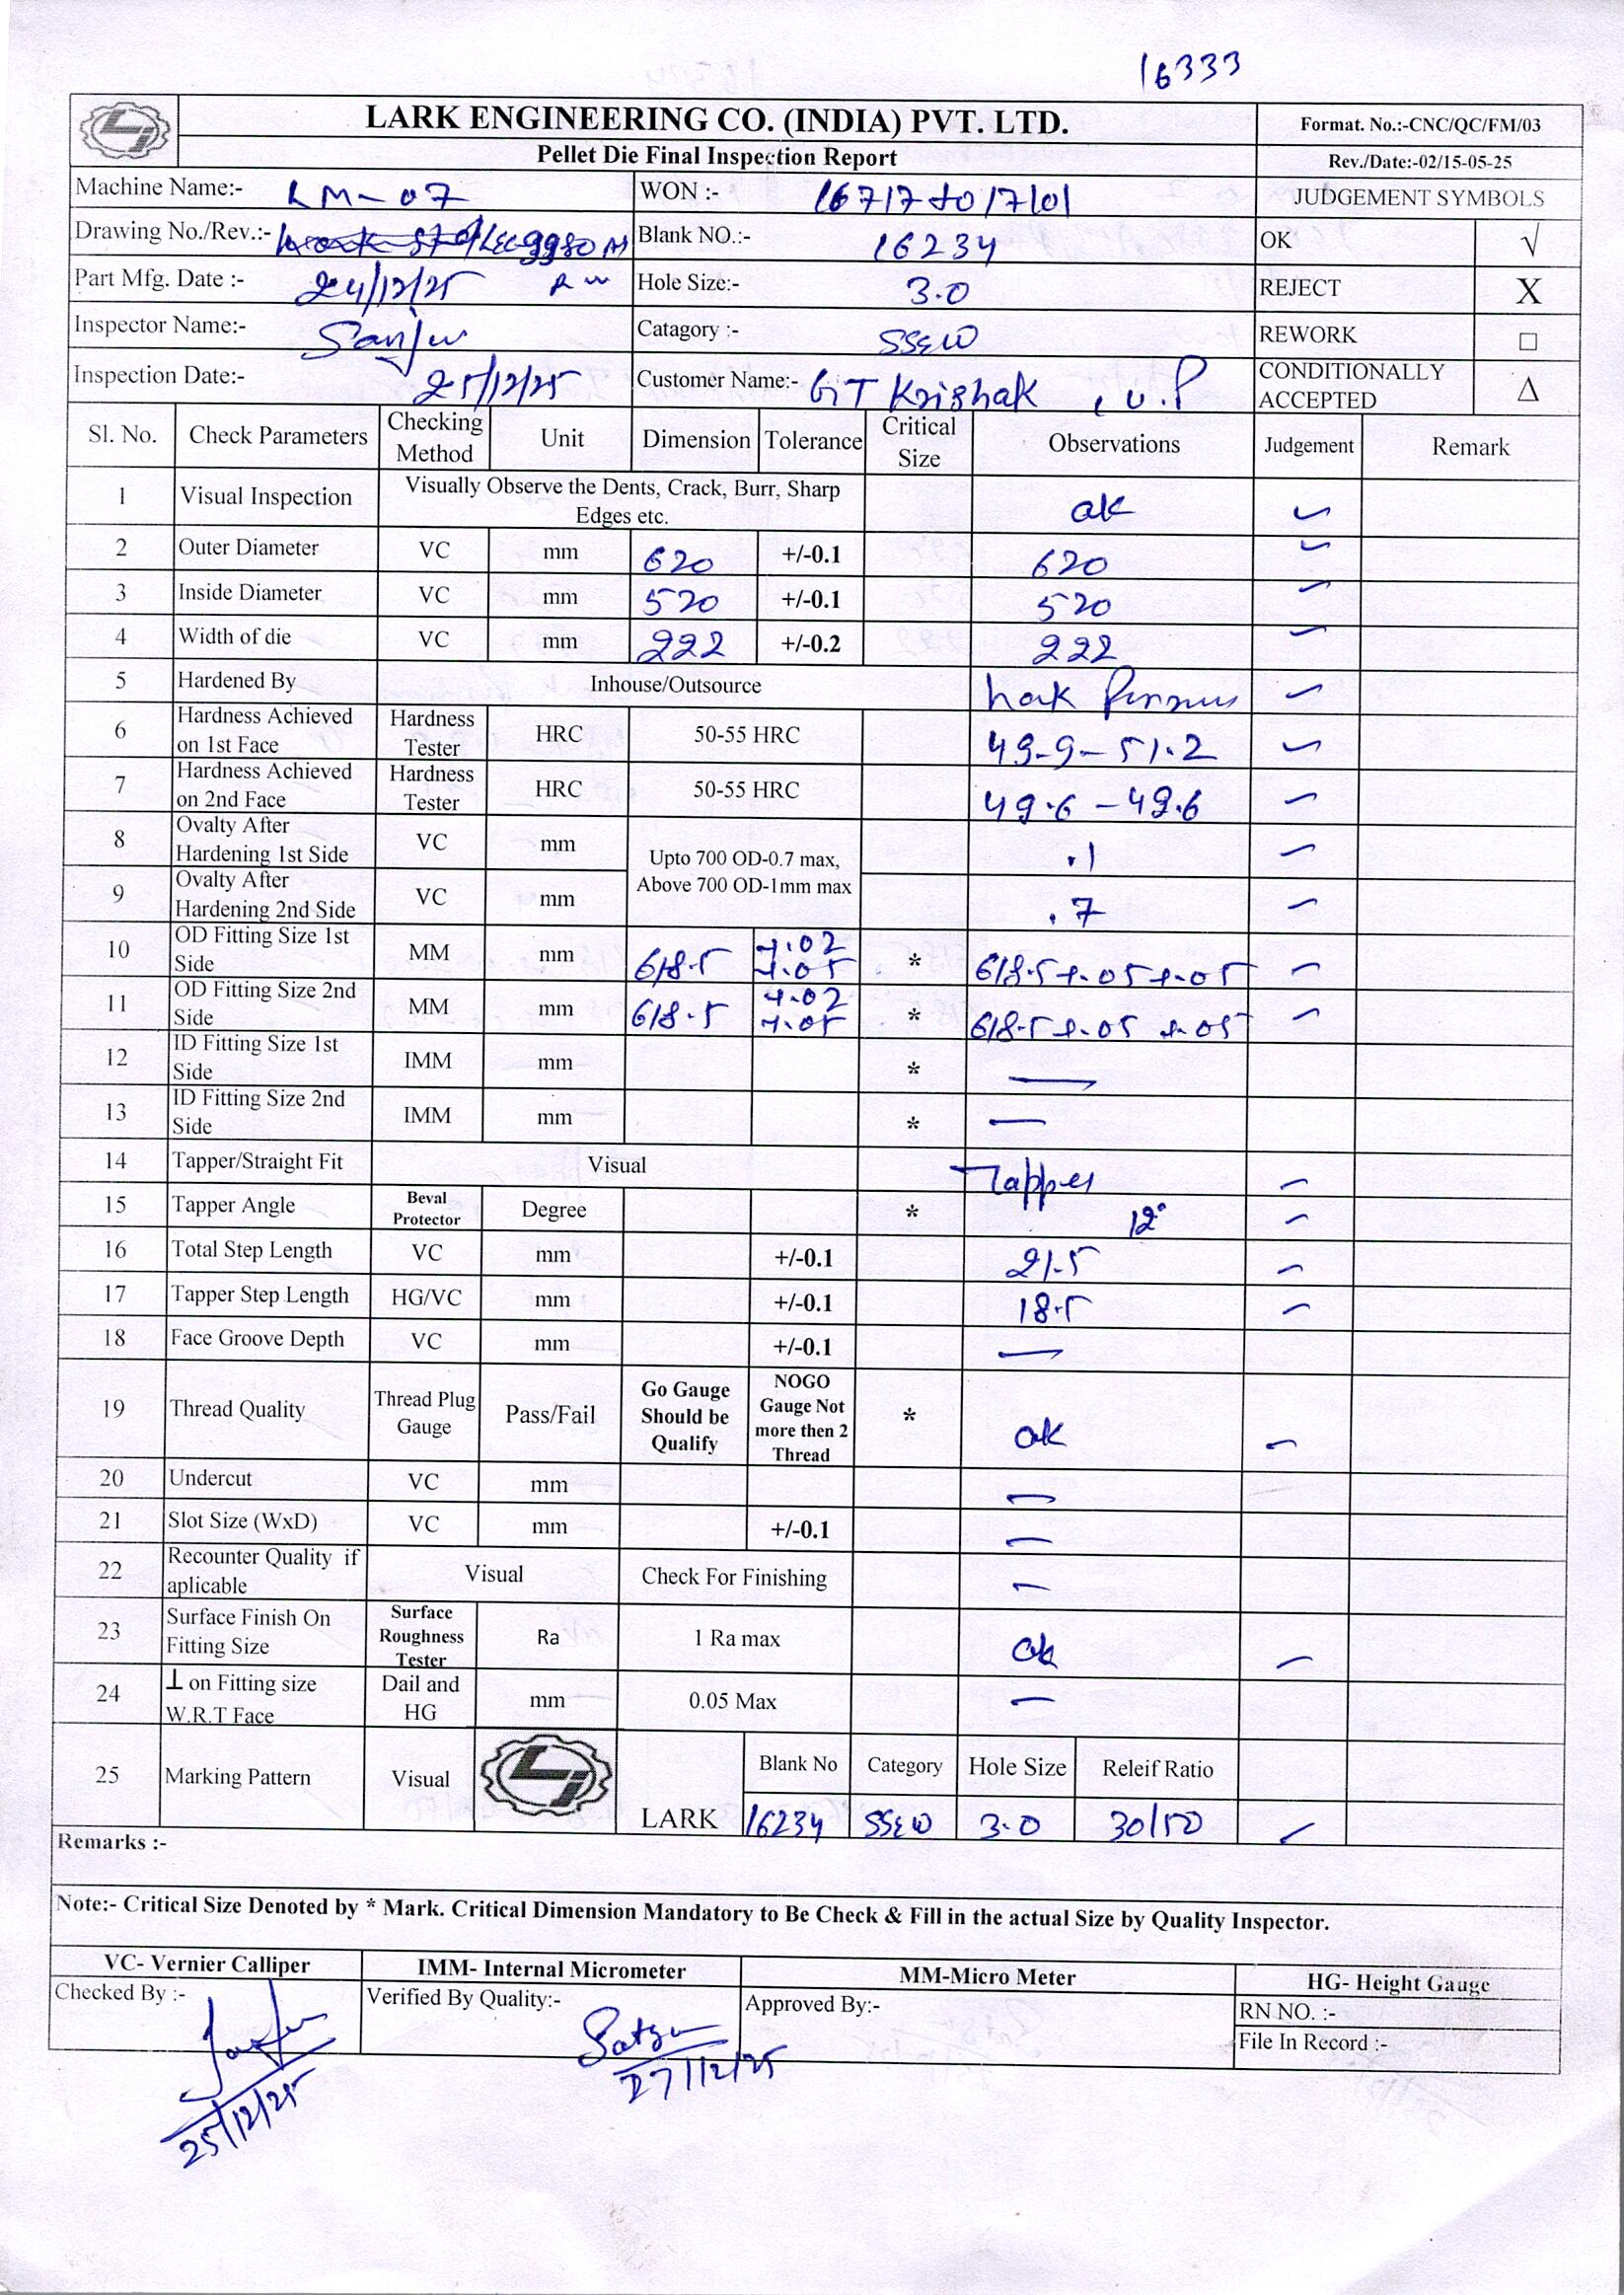 16333
LARK ENGINEERING CO. (INDIA) PVT. LTD.
Format. No.:-CNC/QC/FM/03
Pellet Die Final Inspection Report
Rev./Date:-02/15-05-25
Machine Name:- LM-07 WON :- 16717 to 17101 JUDGEMENT SYMBOLS
Drawing No./Rev.:- Blank NO.:- 16234 OK √
Part Mfg. Date :- 24/12/25 Hole Size:- 3.0 REJECT X
Inspector Name:- Sanju Catagory :- SSEW REWORK □
Inspection Date:- 25/12/25 Customer Name:- GT Krishak , U.P CONDITIONALLY ACCEPTED Δ
Sl. No. Check Parameters Checking Method Unit Dimension Tolerance Critical Size Observations Judgement Remark
1 Visual Inspection Visually Observe the Dents, Crack, Burr, Sharp Edges etc. ok ✓
2 Outer Diameter VC mm 620 +/-0.1 620 ✓
3 Inside Diameter VC mm 520 +/-0.1 520 ✓
4 Width of die VC mm 222 +/-0.2 222 ✓
5 Hardened By Inhouse/Outsource ✓
6 Hardness Achieved on 1st Face Hardness Tester HRC 50-55 HRC 49.9-51.2 ✓
7 Hardness Achieved on 2nd Face Hardness Tester HRC 50-55 HRC 49.6-49.6 ✓
8 Ovalty After Hardening 1st Side VC mm Upto 700 OD-0.7 max, Above 700 OD-1mm max .1 ✓
9 Ovalty After Hardening 2nd Side VC mm .7 ✓
10 OD Fitting Size 1st Side MM mm 618.5 +.02 +.05 * 618.5+.05+.05 ✓
11 OD Fitting Size 2nd Side MM mm 618.5 +.02 +.05 * 618.5+.05+.05 ✓
12 ID Fitting Size 1st Side IMM mm * —
13 ID Fitting Size 2nd Side IMM mm * —
14 Tapper/Straight Fit Visual Tapper ✓
15 Tapper Angle Beval Protector Degree * 12° ✓
16 Total Step Length VC mm +/-0.1 21.5 ✓
17 Tapper Step Length HG/VC mm +/-0.1 18.5 ✓
18 Face Groove Depth VC mm +/-0.1 —
19 Thread Quality Thread Plug Gauge Pass/Fail Go Gauge Should be Qualify NOGO Gauge Not more then 2 Thread * ok ✓
20 Undercut VC mm —
21 Slot Size (WxD) VC mm +/-0.1 —
22 Recounter Quality if aplicable Visual Check For Finishing —
23 Surface Finish On Fitting Size Surface Roughness Tester Ra 1 Ra max ok ✓
24 ⊥ on Fitting size W.R.T Face Dail and HG mm 0.05 Max —
25 Marking Pattern Visual LARK Blank No Category Hole Size Releif Ratio
16234 SSEW 3.0 30/50 ✓
Remarks :-
Note:- Critical Size Denoted by * Mark. Critical Dimension Mandatory to Be Check & Fill in the actual Size by Quality Inspector.
VC- Vernier Calliper IMM- Internal Micrometer MM-Micro Meter HG- Height Gauge
Checked By :- Verified By Quality:- Approved By:- RN NO. :-
File In Record :-
25/12/25
27/12/25